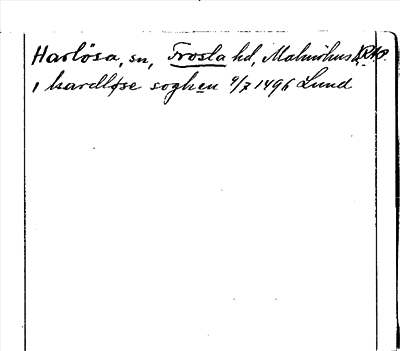 Harlösa, sn, Frosta hd, Malmöhus l. RAP.
i hardløse soghen 9/7 1496 Lund